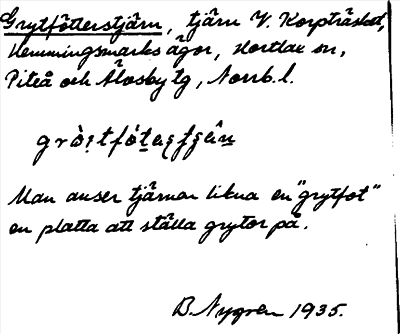 Grytfötterstjärn, tjärn V. Korpträsket,
Hemmingsmarks ägor, Hortlax sn,
Piteå och Älvsby tg, Norrb. l.
Man anser tjärnen likna en "grytfot"
en platta att ställa grytor på.
B. Nygren 1935.